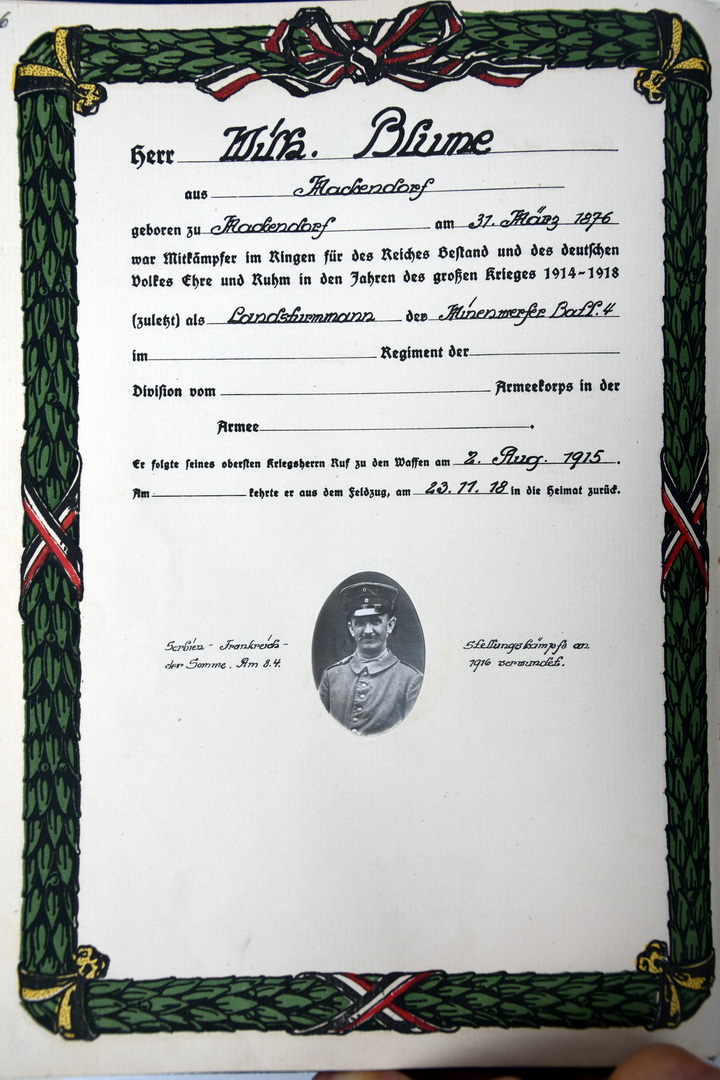 6
Herr Wilh. Blume
aus Mackendorf
geboren zu Mackendorf am 31. März 1876
war Mitkämpfer im Ringen für des Reiches Bestand und des deutschen
Volkes Ehre und Ruhm in den Jahren des großen Krieges 1914-1918
(zuletzt) als Landsturmmann der Minenwerfer Batt. 4
im Regiment der
Division vom Armeekorps in der
Armee .
Er folgte seines obersten Kriegsherrn Ruf zu den Waffen am 2. Aug. 1915.
Am kehrte er aus dem Feldzug, am 23. 11. 18 in die Heimat zurück.
Serbien - Frankreich - Stellungskämpfe an
der Somme. Am 8.4. 1916 verwundet.